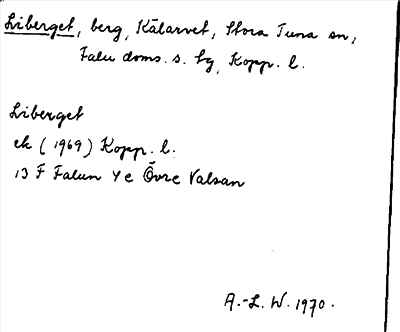 Liberget, berg, Kälarvet, Stora Tuna sn,
Falu doms. s. tg, Kopp. l.
Liberget
ek (1969) Kopp. l.
13 F Falun 4 e Övre Valsan
A.-L. W. 1970.